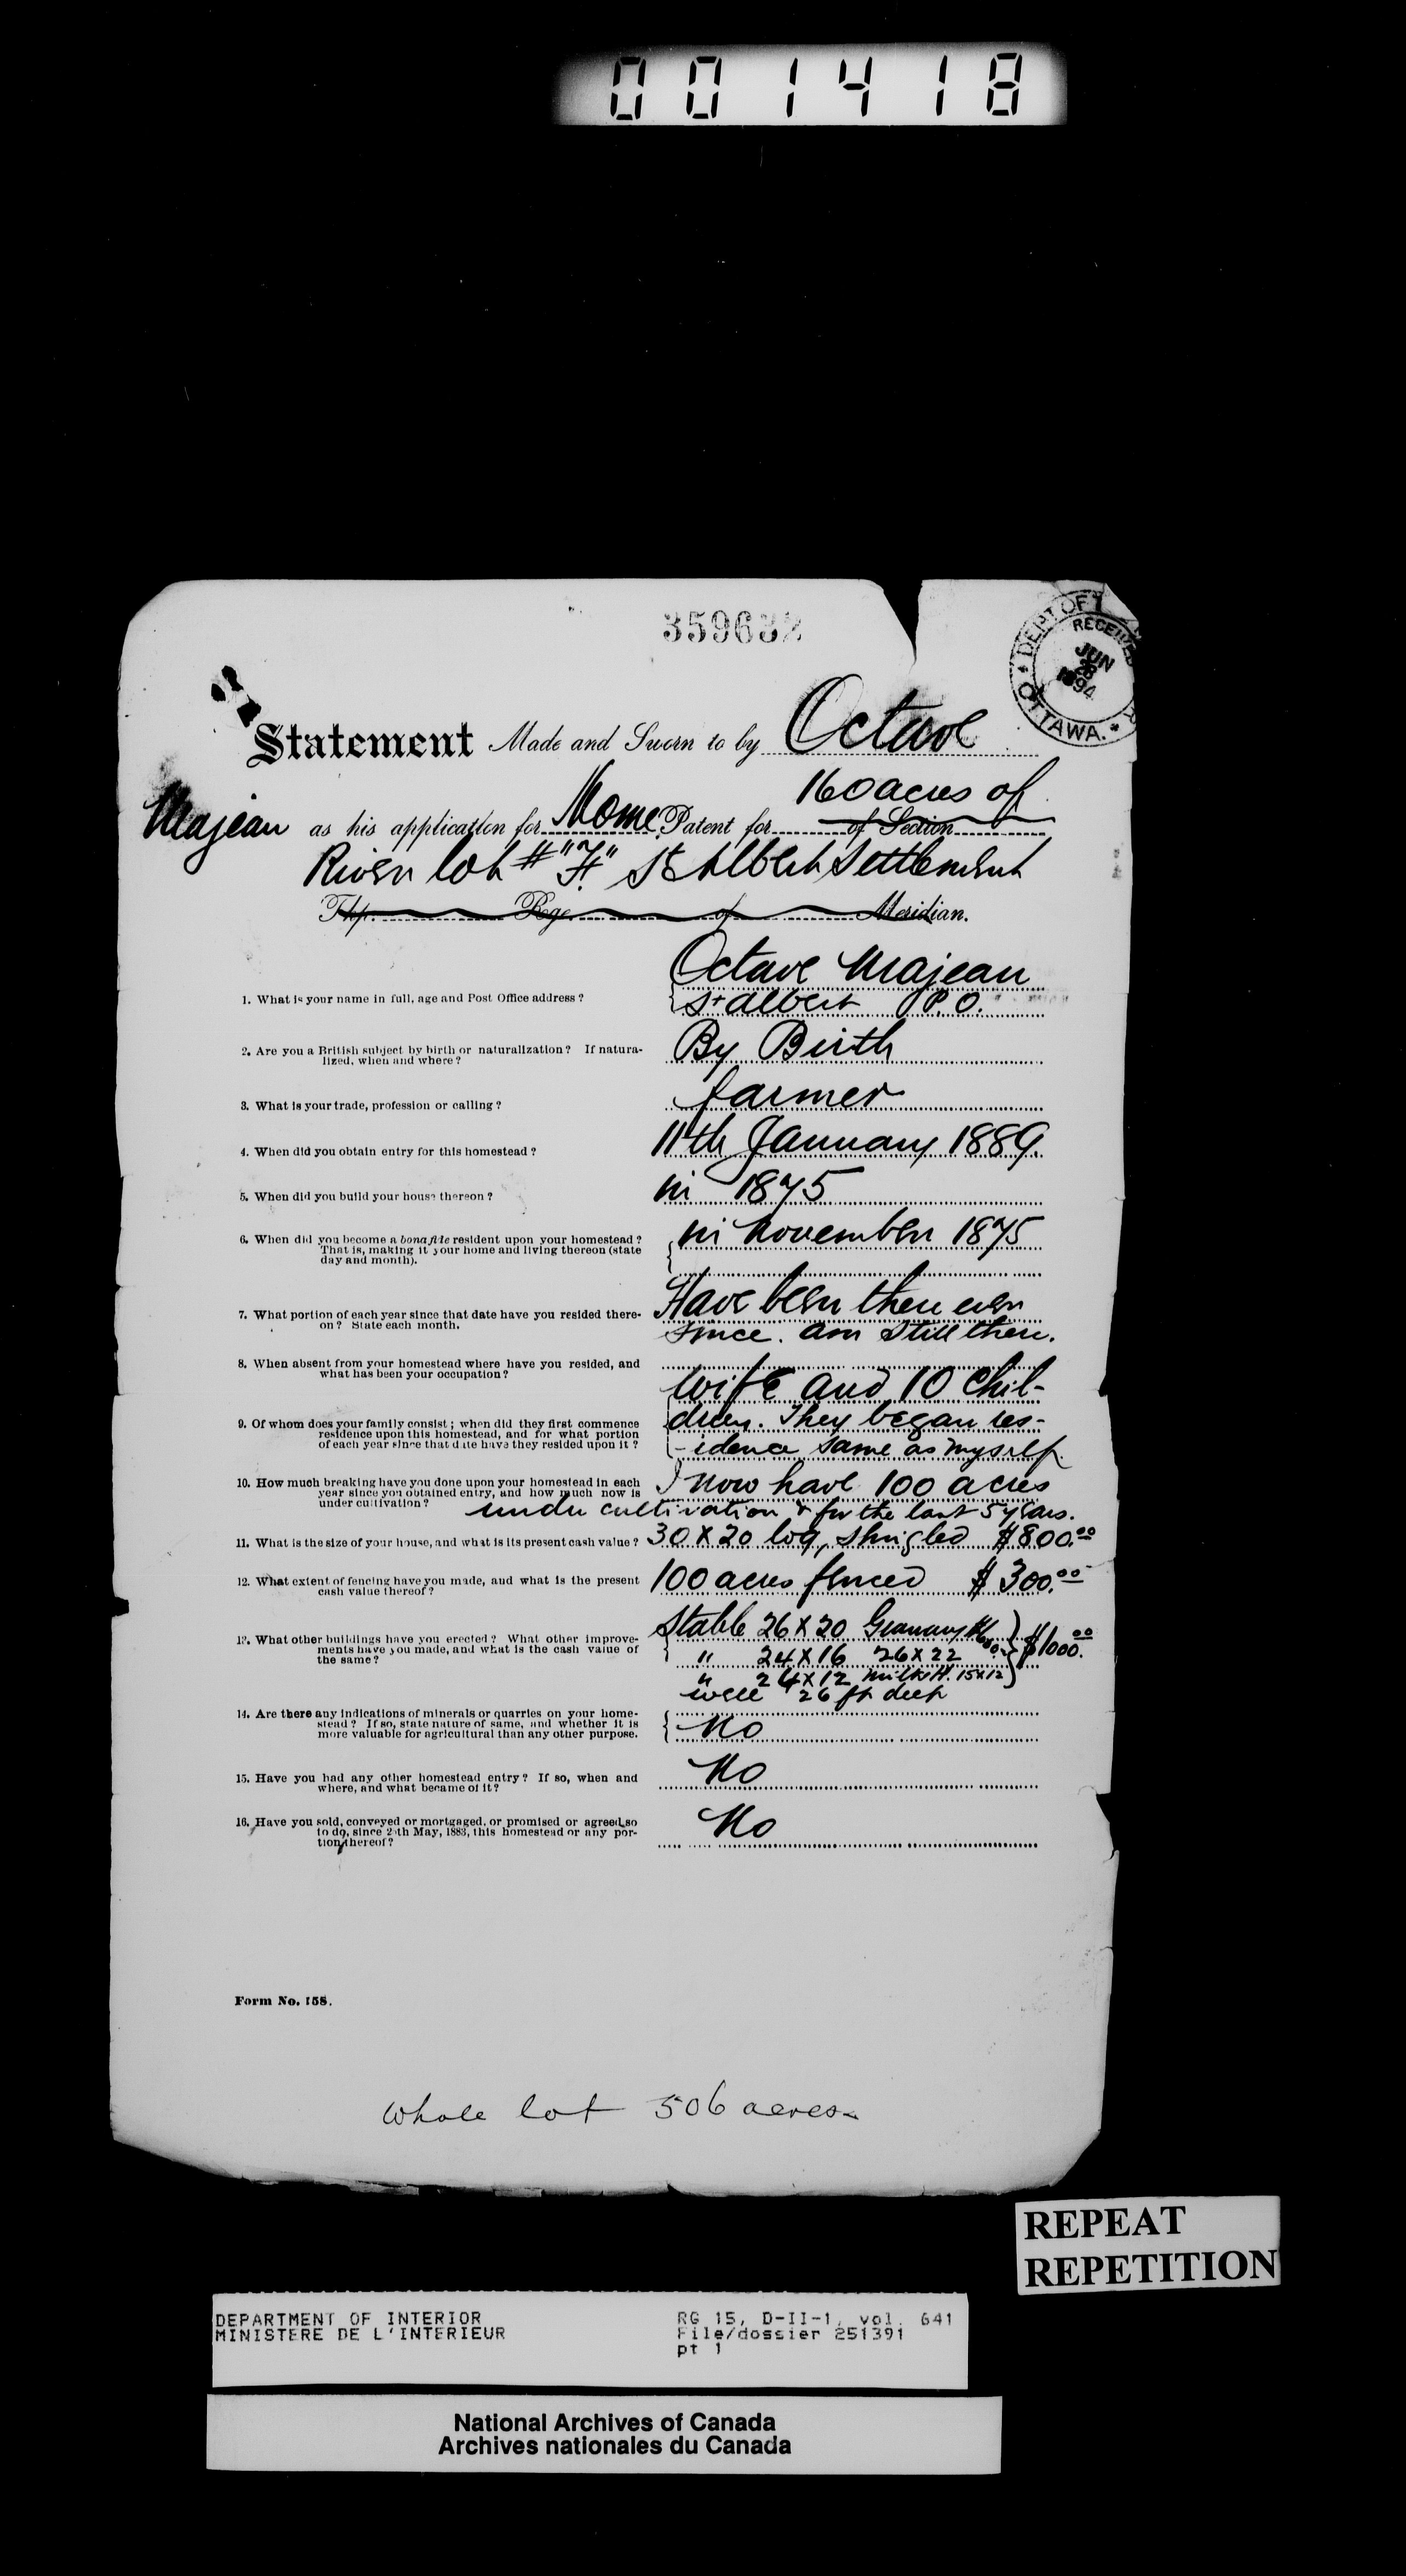 001418
359632
DEPT OF
RECEIVED
JUN
28
1894
OTTAWA.
Statement Made and Sworn to by Octave
160 acres of
Majeau as his application for Home Patent for of Section
River lot # "F" St Albert Settlement
Thp. Rge. of Meridian.
Octave Majeau
1. What is your name in full, age and Post Office address?
St Albert P.O.
2. Are you a British subject by birth or naturalization? If natura-
lized, when and where?
By Birth
3. What is your trade, profession or calling?
farmer
4. When did you obtain entry for this homestead?
11th January 1889.
5. When did you build your house thereon?
in 1875
6. When did you become a bona fide resident upon your homestead?
That is, making it your home and living thereon (state
day and month).
in November 1875
7. What portion of each year since that date have you resided there-
on? State each month.
Have been there ever
since. am still there.
8. When absent from your homestead where have you resided, and
what has been your occupation?
9. Of whom does your family consist; when did they first commence
residence upon this homestead, and for what portion
of each year since that date have they resided upon it?
Wife and 10 chil-
dren. They began res-
-idence same as myself.
10. How much breaking have you done upon your homestead in each
year since you obtained entry, and how much now is
under cultivation?
I now have 100 acres
under cultivation & for the last 5 years.
11. What is the size of your house, and what is its present cash value?
30 X 20 log, shingled $800.00
12. What extent of fencing have you made, and what is the present
cash value thereof?
100 acres fenced $300.00
13. What other buildings have you erected? What other improve-
ments have you made, and what is the cash value of
the same?
Stable 26 X 20 Granary
" 24 X 16 26 X 22 $1000.00
" 24 X 12 Milk H. 15 X 12
well 26 ft deep
14. Are there any indications of minerals or quarries on your home-
stead? If so, state nature of same, and whether it is
more valuable for agricultural than any other purpose.
No
15. Have you had any other homestead entry? If so, when and
where, and what became of it?
No
16. Have you sold, conveyed or mortgaged, or promised or agreed so
to do, since 25th May, 1883, this homestead or any por-
tion thereof?
No
Form No. 158.
Whole lot 506 acres
REPEAT
REPETITION
DEPARTMENT OF INTERIOR
MINISTERE DE L'INTERIEUR
RG 15, D-II-1, vol. 641
File/dossier 251391
pt 1
National Archives of Canada
Archives nationales du Canada